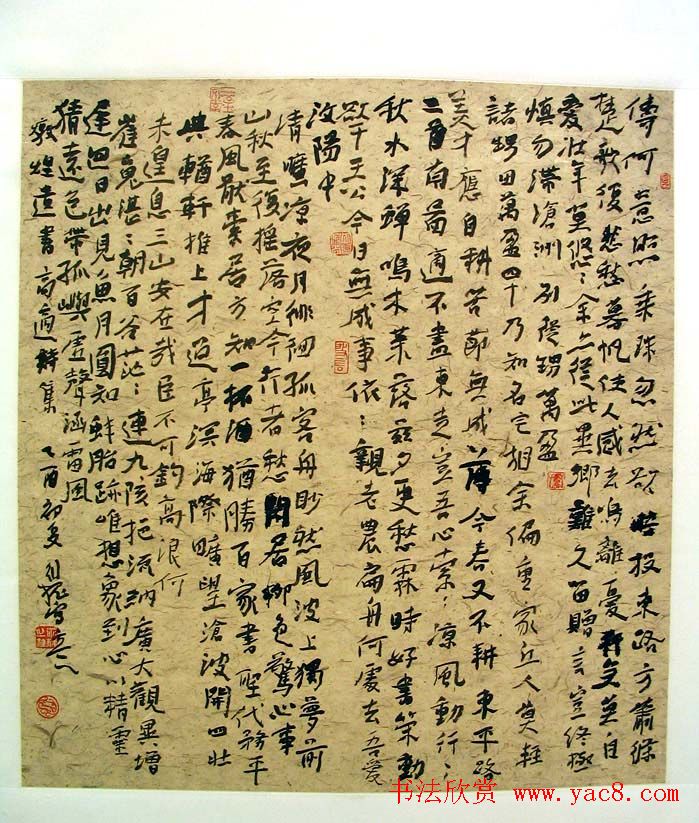 傳何意照乘珠忽然欲暗投東路方蕭條
楚歌復悲愁暮帆使人感去鳥離憂行矣莫自
愛壯年莫悠悠余亦從此辭異鄉難久留贈言豈終極
慎勿滯滄洲 別從甥萬盈
諸甥田萬盈四十乃知名宅相余偏重家丘人莫輕
美才應自料苦節無成 今春又不耕東平路
二首南圖適不盡東走豈吾心索索涼風動行行
秋水深蟬鳴木葉落茲夕更愁霖時好書策動
欲干王公今日無成事依依親老農扁舟何處去吾愛
汶陽中
清曠涼夜月徘徊孤客舟眇然風波上獨夢前
山秋至後搖落空今行者愁閑居柳色驚心事
春風厭索居方知一杯酒猶勝百家書聖代務平
典輶軒推上才迢亭溟海際曠望滄波開四壯
未皇息三山安在哉巨不可釣高浪何
崔嵬湛湛朝百谷茫茫連九陔挹流納廣大觀異增
遲迴日出見魚月圓知蚌胎跡唯想象到心以精靈
猜遠色帶孤嶼虛聲涵雷風
敦煌遺書高適詩集 乙酉初夏
书法欣赏 www.yac8.com